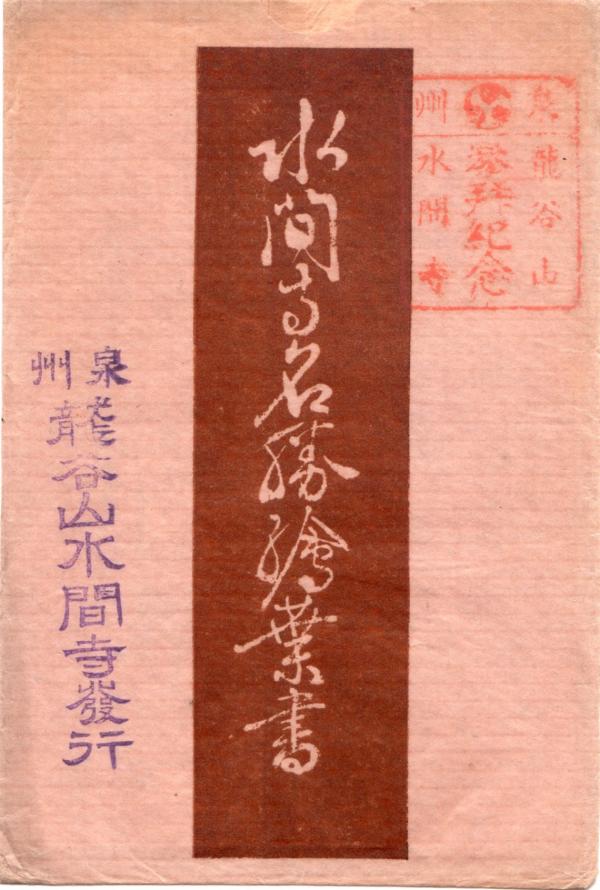 泉龍谷山
参拝紀念
州水間寺
水間寺名勝繪葉書
泉州
龍谷山水間寺發行